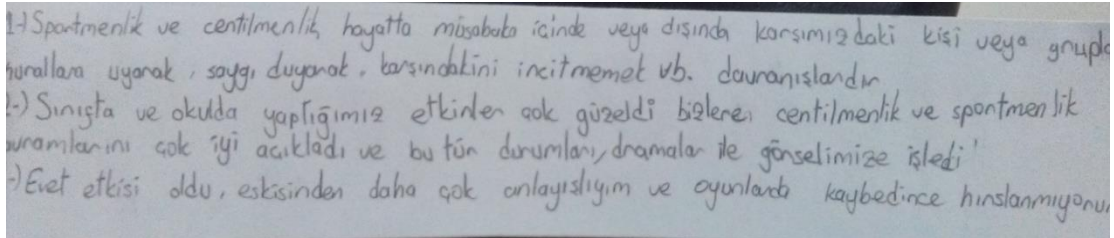 1-) Sportmenlik ve centilmenlik hayatta müsabaka içinde veya dışında karşımızdaki kişi veya grupla
kurallara uyarak, saygı duyarak, karşındakini incitmemek vb. davranışlardır
2-) Sınıfta ve okulda yaptığımız etkinler çok güzeldi bizlere, centilmenlik ve sportmenlik
kavramlarını çok iyi açıkladı ve bu tür durumları, dramalar ile görselimize işledi
-) Evet etkisi oldu, eskisinden daha çok anlayışlıyım ve oyunlarda kaybedince hırslanmıyorum